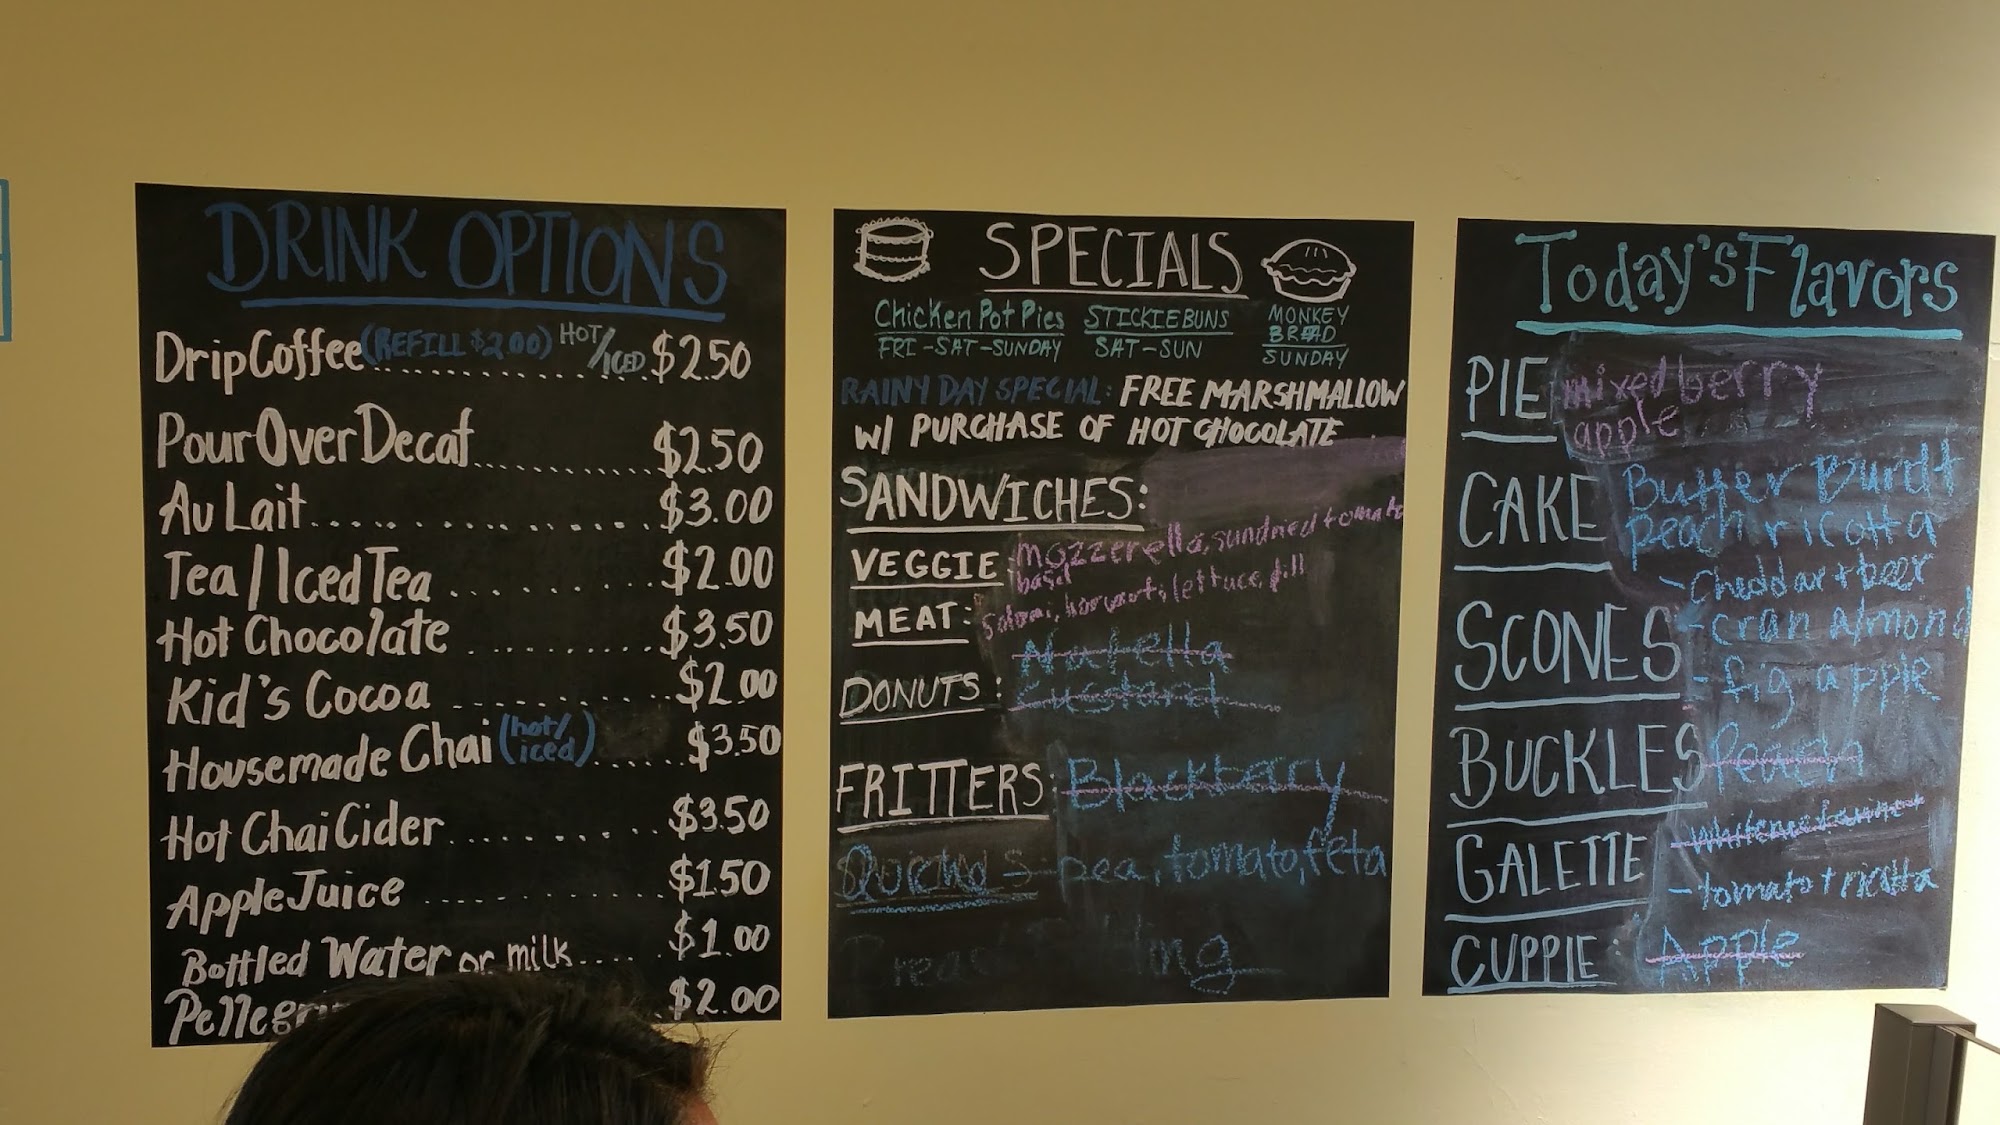 DRINK OPTIONS
Drip Coffee (REFILL $2.00) HOT/ICED $2.50
Pour Over Decaf $2.50
Au Lait $3.00
Tea / Iced Tea $2.00
Hot Chocolate $3.50
Kid's Cocoa $2.00
Housemade Chai (hot/iced) $3.50
Hot Chai Cider $3.50
Apple Juice $1.50
Bottled Water or milk $1.00
$2.00
SPECIALS
Chicken Pot Pies
FRI-SAT-SUNDAY
STICKIEBUNS
SAT-SUN
MONKEY
BREAD
SUNDAY
RAINY DAY SPECIAL: FREE MARSHMALLOW
W/ PURCHASE OF HOT CHOCOLATE
SANDWICHES:
VEGGIE: mozzerella, sundried tomato
basil
MEAT: salami, lettuce, dill
DONUTS: Nutella
Custard
FRITTERS: Blackberry
pea, tomato, feta
Today's Flavors
PIE mixed berry
apple
CAKE Butter
peach ricotta
SCONES - Cheddar + beer
- cran almond
- fig apple
BUCKLES Peach
GALETTE
- tomato + ricotta
CUPPIE: Apple